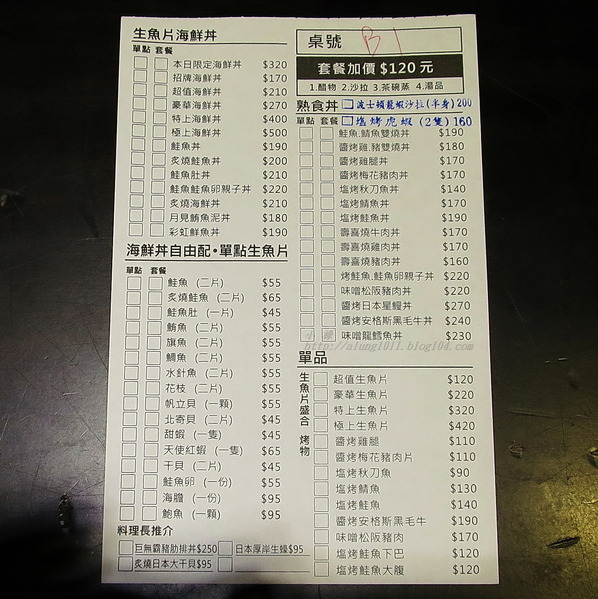 生魚片海鮮丼
單點 套餐
本日限定海鮮丼 $320
招牌海鮮丼 $170
超值海鮮丼 $210
豪華海鮮丼 $270
特上海鮮丼 $400
極上海鮮丼 $500
鮭魚丼 $190
炙燒鮭魚丼 $200
鮭魚肚丼 $210
鮭魚鮭魚卵親子丼 $220
炙燒海鮮丼 $210
月見鮪魚泥丼 $180
彩虹鮮魚丼 $190
海鮮丼自由配•單點生魚片
單點 套餐
鮭魚 (二片) $55
炙燒鮭魚 (二片) $65
鮭魚肚 (一片) $45
鮪魚 (二片) $55
旗魚 (二片) $55
鯛魚 (二片) $55
水針魚 (二片) $55
花枝 (二片) $55
帆立貝 (一顆) $55
北寄貝 (二片) $45
甜蝦 (一隻) $45
天使紅蝦 (一隻) $65
干貝 (二片) $45
鮭魚卵 (一份) $55
海膽 (一份) $95
鮑魚 (一顆) $95
料理長推介
巨無霸豬肋排丼$250 日本厚岸生蠔$95
炙燒日本大干貝$95
桌號 B1
套餐加價 $120 元
1.醋物 2.沙拉 3.茶碗蒸 4.湯品
熟食丼 波士頓龍蝦沙拉(半身)200
單點 套餐 塩烤虎蝦 (2隻) 160
鮭魚.鯖魚雙燒丼 $190
醬烤雞.豬雙燒丼 $180
醬烤雞腿丼 $170
醬烤梅花豬肉丼 $170
塩烤秋刀魚丼 $140
塩烤鯖魚丼 $170
塩烤鮭魚丼 $190
壽喜燒牛肉丼 $170
壽喜燒雞肉丼 $170
壽喜燒豬肉丼 $160
烤鮭魚.鮭魚卵親子丼 $220
味噌松阪豬肉丼 $220
醬烤日本星鰻丼 $270
醬烤安格斯黑毛牛丼 $240
味噌龍鱈魚丼 $230
http://alung1011.blog104.com
單品
生魚片盛合
超值生魚片 $120
豪華生魚片 $220
特上生魚片 $320
極上生魚片 $420
烤物
醬烤雞腿 $110
醬烤梅花豬肉片 $110
塩烤秋刀魚 $90
塩烤鯖魚 $130
塩烤鮭魚 $140
醬烤安格斯黑毛牛 $190
味噌松阪豬肉 $170
塩烤鮭魚下巴 $120
塩烤鮭魚大腹 $120